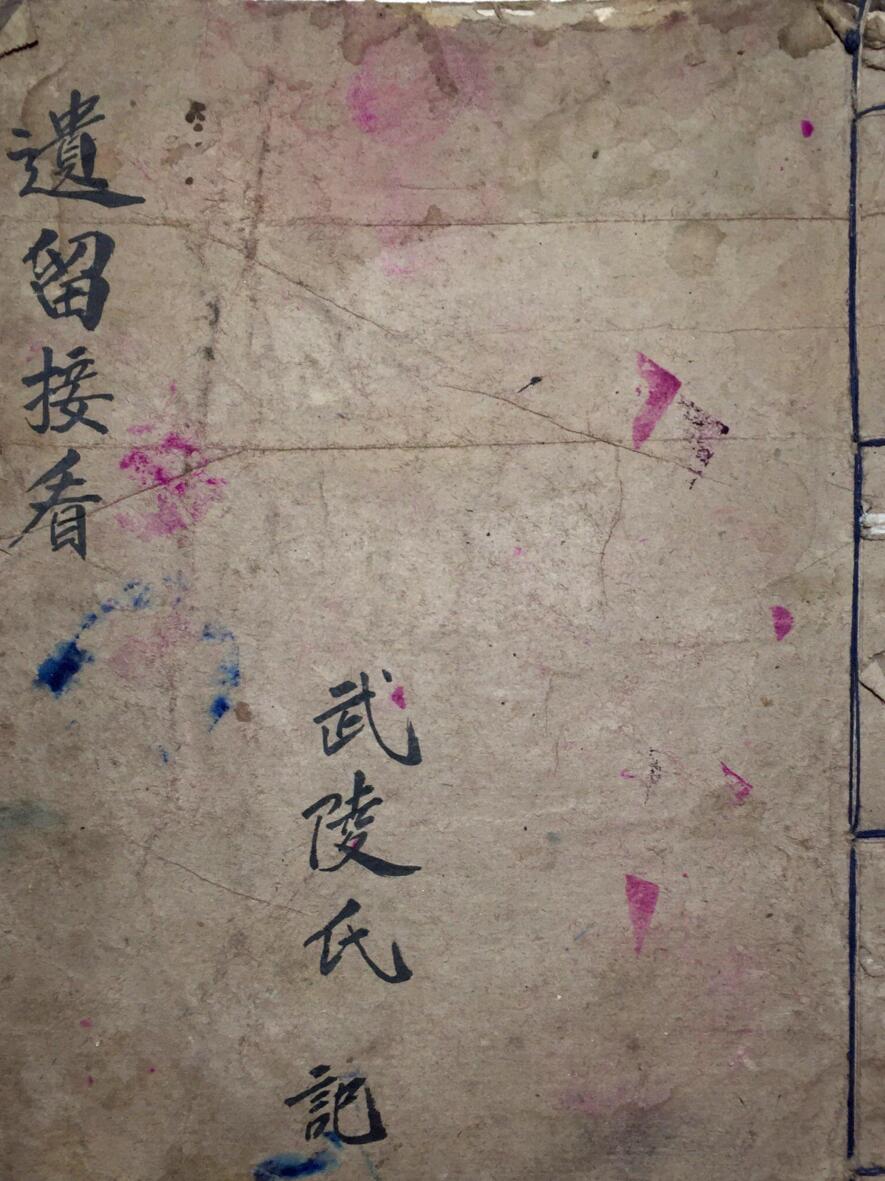 武陵氏 記
遺留接看